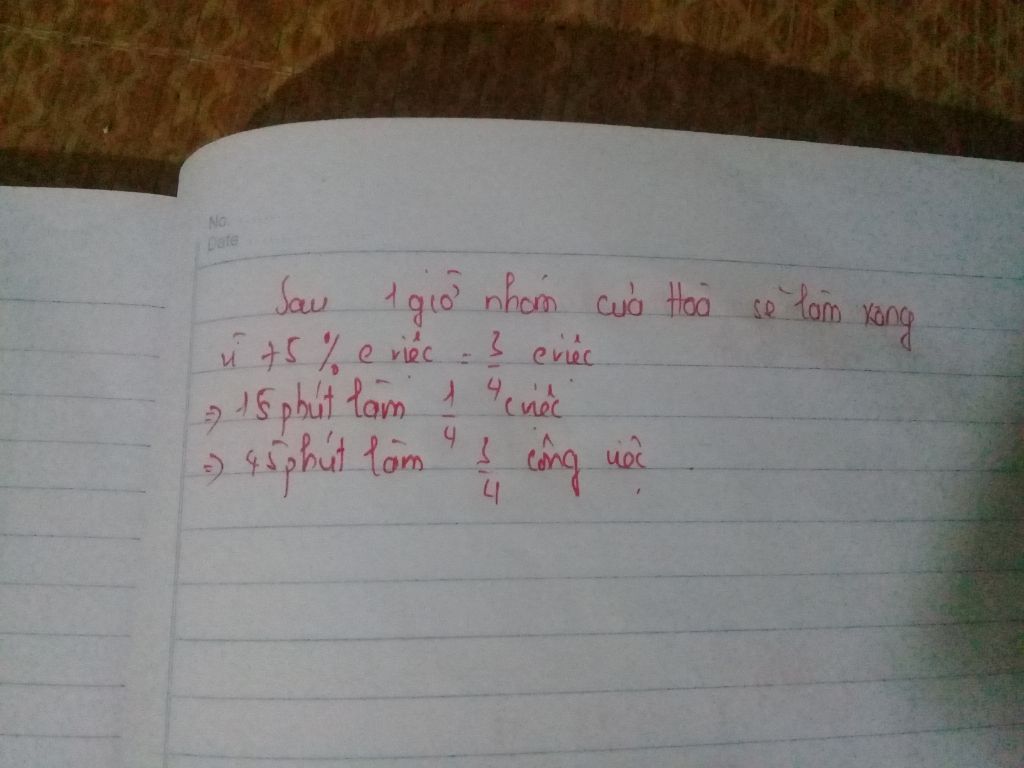 No.
Date
Sau 1 giờ nhóm của Hoà sẽ làm xong
vì 75% c việc = 3/4 c việc
=> 15 phút làm 1/4 c việc
=> 45 phút làm 3/4 công việc.